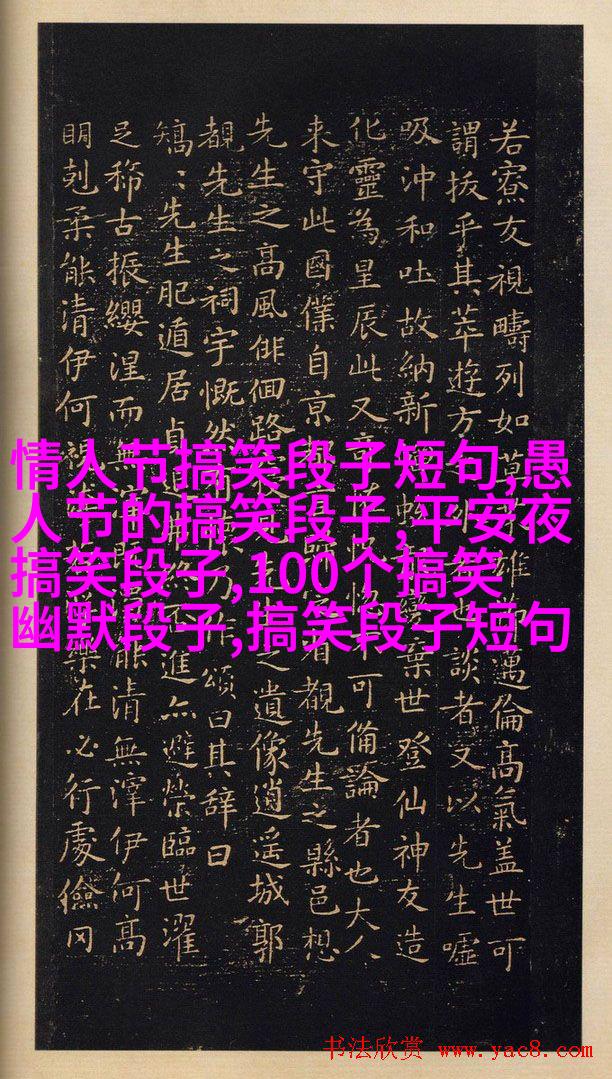 若寮友視疇列如草雄邁倫高氣蓋世可
謂拔乎其萃遊方外者也談者又以先生噓
吸沖和吐故納新蛻變棄世登仙神友造
化靈為星辰此又奇惚可備論者也大人
来守此國僕自京都言省覩先生之縣邑想
先生之高風徘徊路之遺像逍遥城郭
覩先生之祠宇慨然有乃作頌曰其辭曰
矯:先生肥遁居貞退不進亦避榮臨世濯
足稀古振纓涅而無能清無滓伊何高
明剋柔能清伊何視樂在必行處儉罔
情人节搞笑段子短句,愚
人节的搞笑段子,平安夜
搞笑段子,100个搞笑
幽默段子,搞笑段子短句
书法欣赏 www.yac8.com